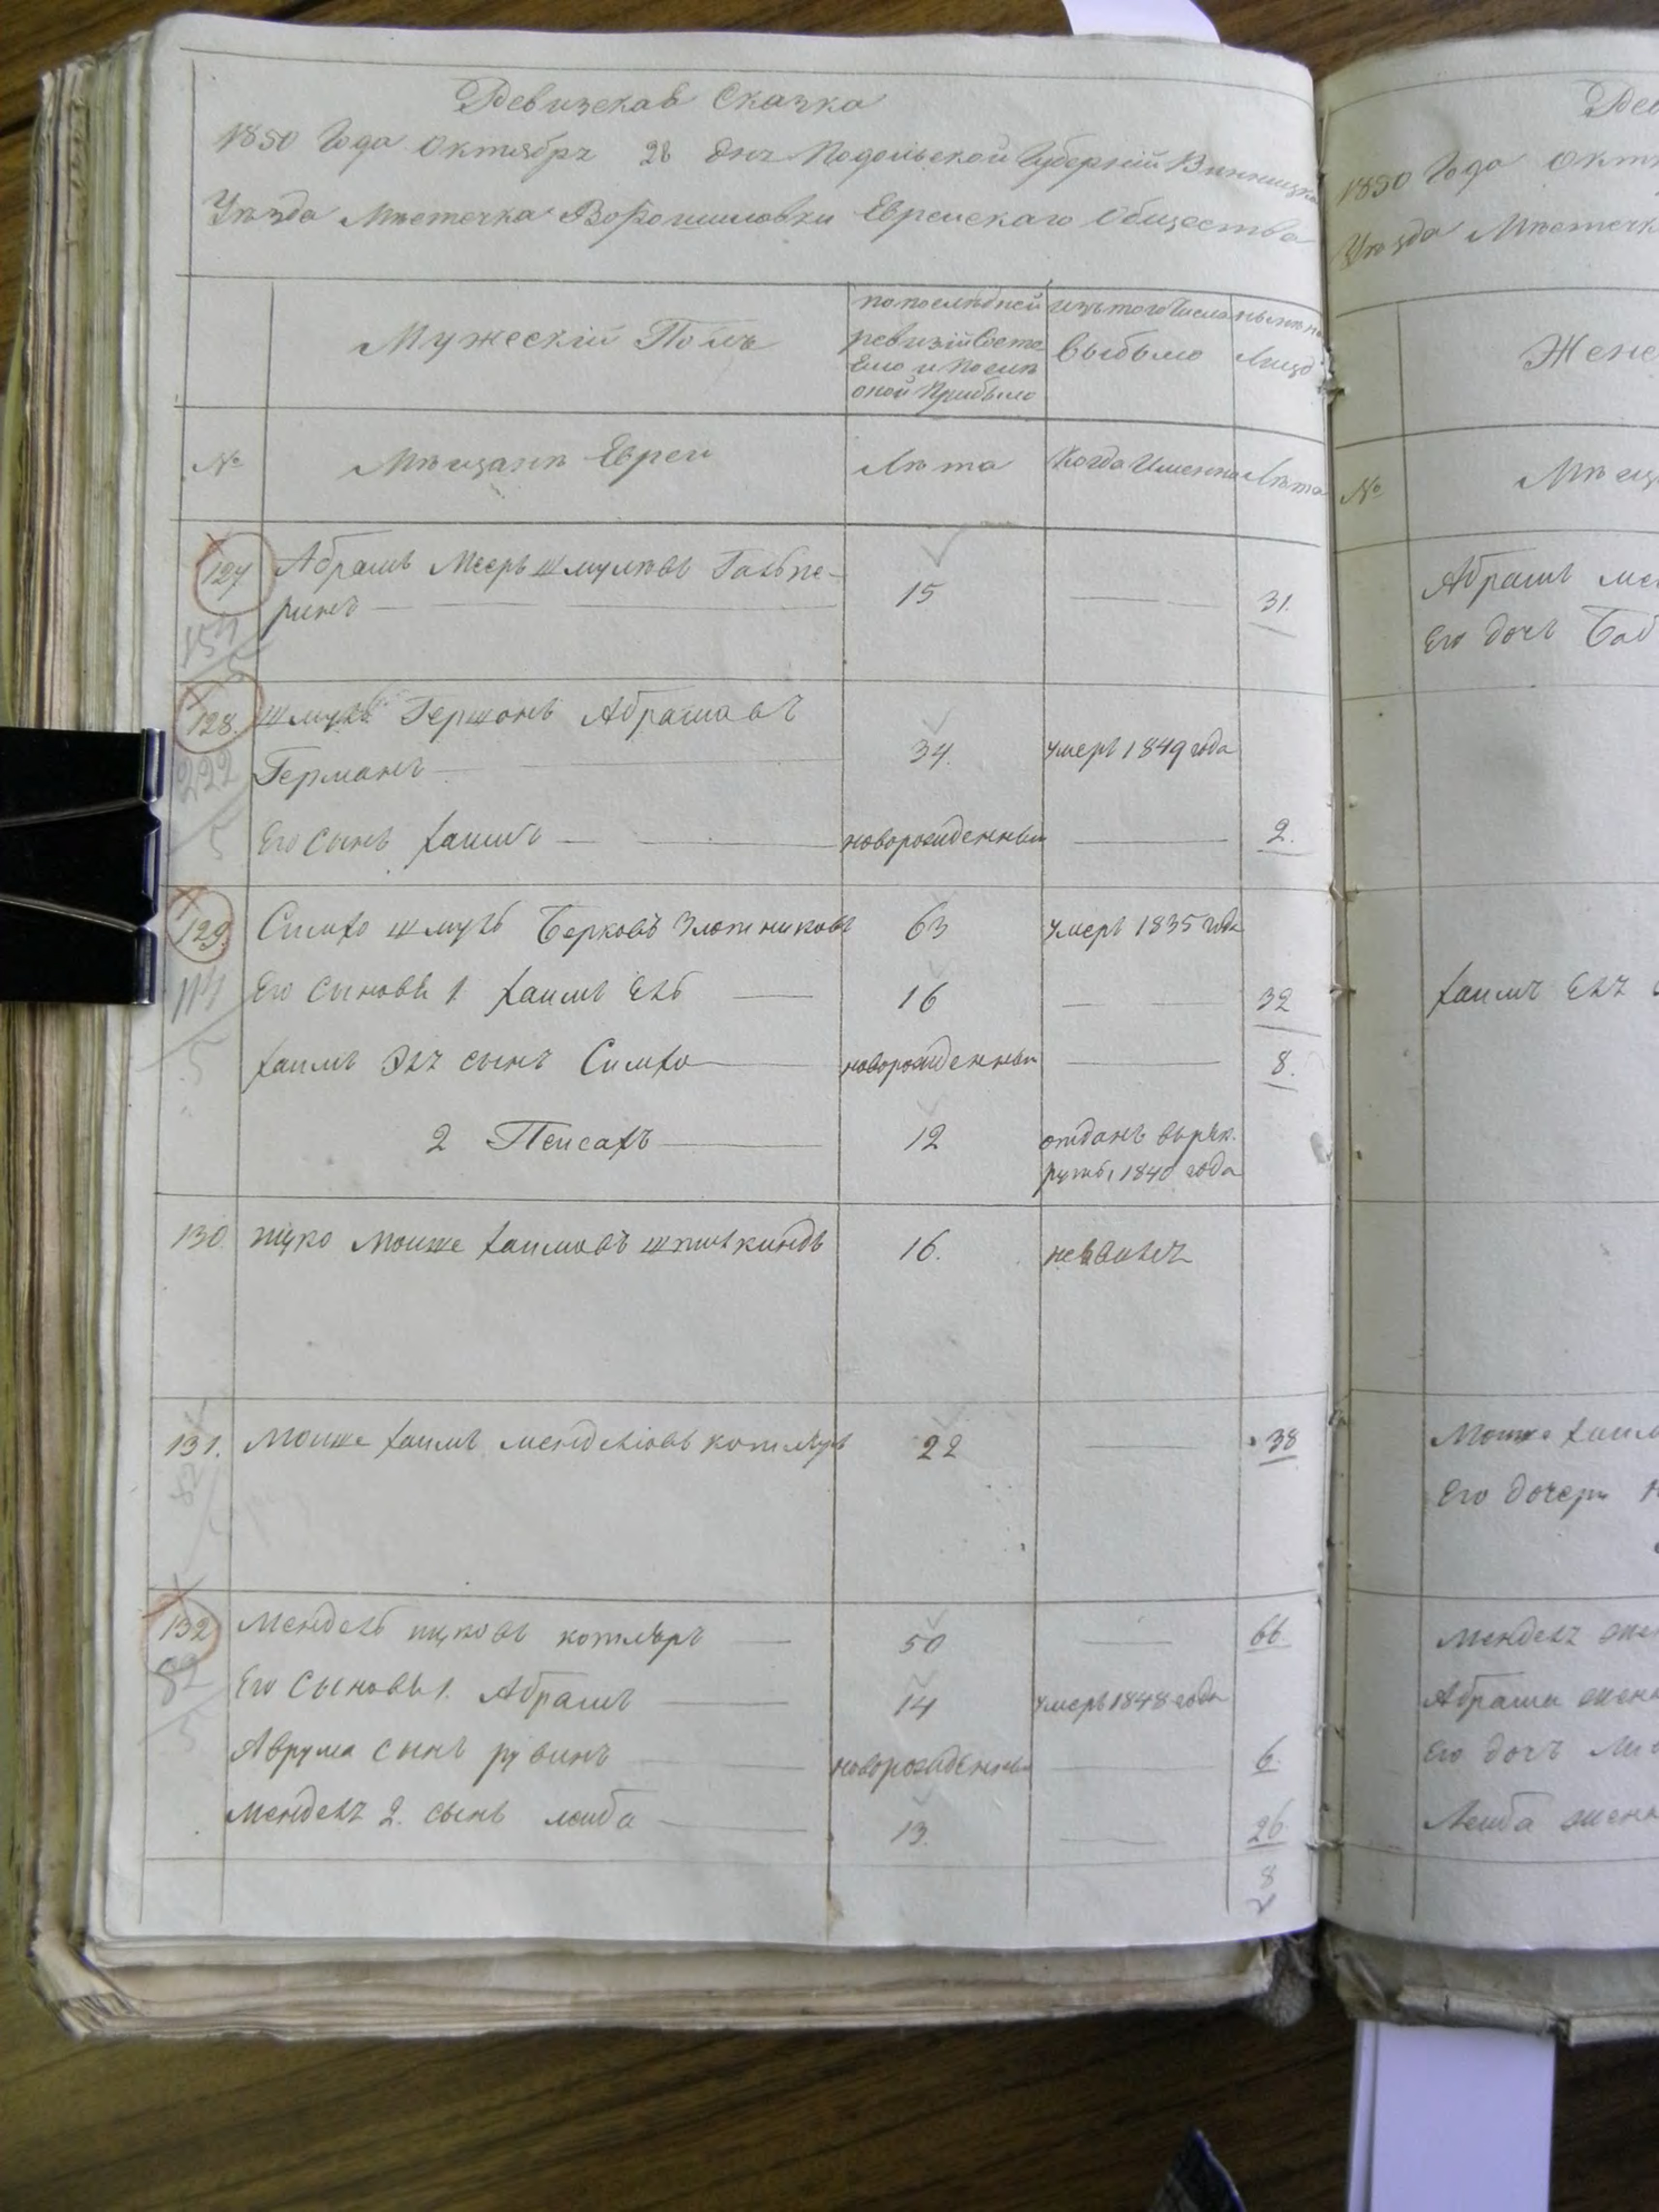 Ревизская Сказка
1850 Года Октября 28 дня Подольской Губерній Винницка
Уѣзда Мѣстечка Ворошиловки Еврейскаго Общества
Мужескій Полъ
попослѣдней
ревизій Состо
яло и послѣ
оной Прибыло
изътого Числа
выбыло
нынѣ на
Лицо
№
Мѣщанѣ Евреи
Лѣта
Когда Именно
Лѣта
127 Абрамъ Мееръ Шмулёвъ Гальпе-
ринъ — 15 — 31.
128. Шмуль Гершонъ Абрамовъ
Германъ — 34. умеръ 1849 года
222
5
Его Сынъ Хаимъ — новорожденный — 2.
129. Симхо Шмуль Берковъ Злотниковъ 63 умеръ 1835 года
114
5
Его Сыновья 1 Хаимъ Ель — 16 — 32
Хаимъ Элъ сынъ Симхо — новорожденный — 8.
2 Пейсахъ — 12 отданъ вырек.
руты 1840 года
130 Ицко Мошке Хаимовъ 16.
131. Мошке Хаимъ Менделіовъ Котляръ 22 — 38
132 Мендель Ицковъ Котляръ — 50 — 66.
82
5
Его Сыновья 1. Абрамъ — 14 умеръ 1848 года
Аврума сынъ Рувинъ — новорожденный — 6.
Менделъ 2. сынъ Лейба — 13. — 26
8
Рев
1850 Года Окт
Уѣзда Мѣстечк
Женс
№
Мѣщ
Абрамъ Ме
Его дочь Баб
Хаимъ Елъ
Мошке Хаим
Его дочери
Менделъ жен
Абрама жен
Его дочъ
Лейба жен